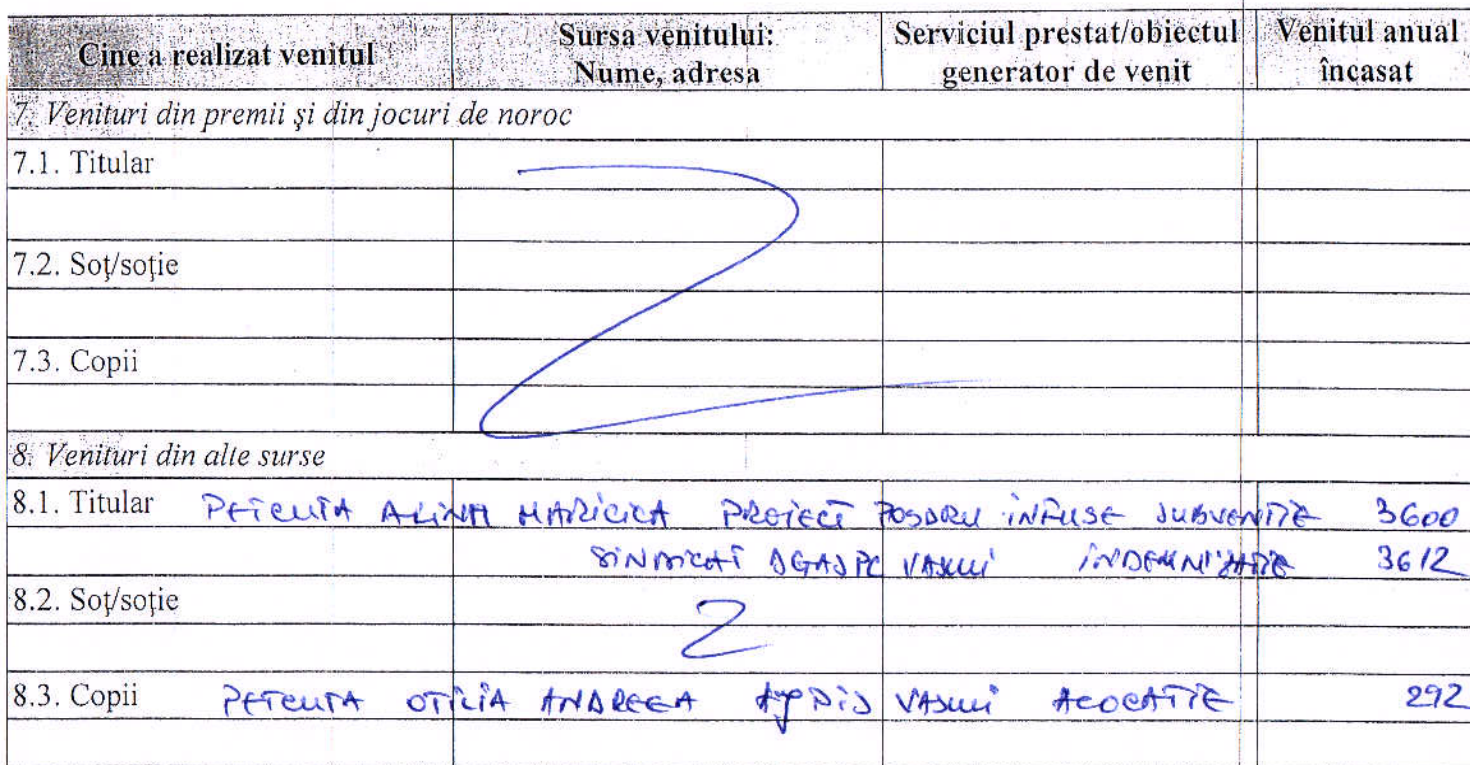 Cine a realizat venitul Sursa venitului: Nume, adresa Serviciul prestat/obiectul generator de venit Venitul anual încasat
7. Venituri din premii şi din jocuri de noroc
7.1. Titular
7.2. Soţ/soţie
7.3. Copii
8. Venituri din alte surse
8.1. Titular PETCUTA ALINA MARICICA PROIECT POSDRU INFUSE SUBVENTIE 3600
SINDICAT DGASPC VASLUI INDEMNIZATIE 3612
8.2. Soţ/soţie
8.3. Copii PETCUTA OTILIA ANDREEA VASLUI ALOCATIE 292